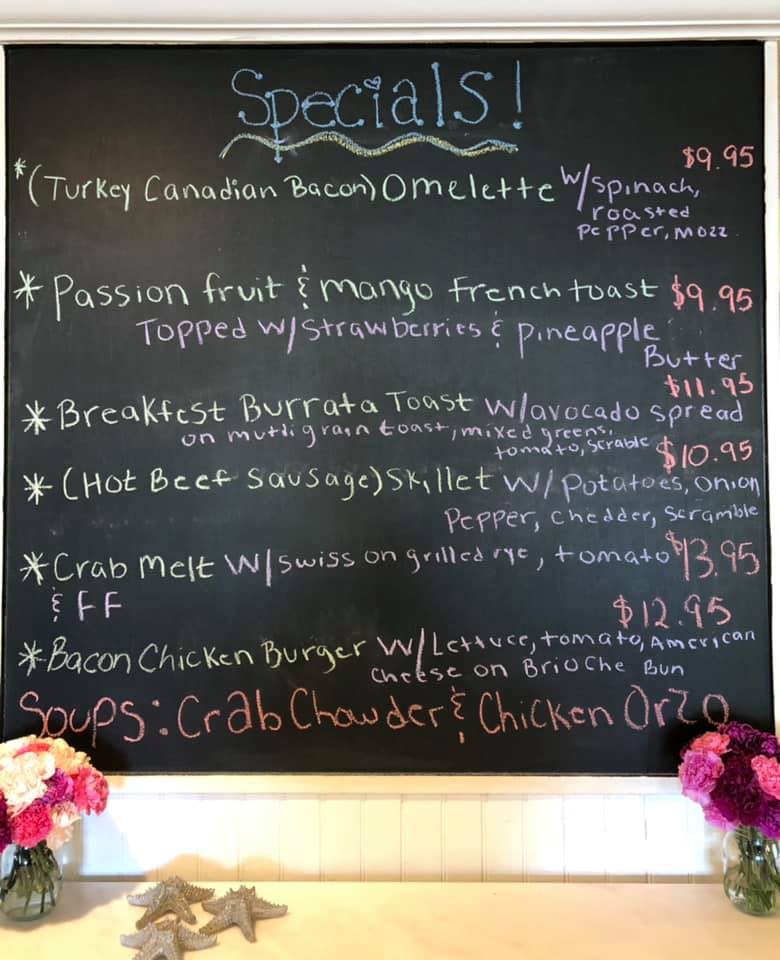 Specials!
$9.95
*(Turkey Canadian Bacon) Omelette w/spinach,
roasted
pepper, mozz
* Passion fruit & mango french toast $9.95
Topped w/strawberries & pineapple
Butter
$11.95
* Breakfest Burrata Toast w/avocado spread
on multigrain toast, mixed greens,
tomato, scrable
$10.95
* (Hot Beef Sausage) Skillet w/Potatoes, onion
Pepper, chedder, scramble
* Crab melt w/swiss on grilled rye, tomato $13.95
& FF
$12.95
* Bacon Chicken Burger w/Lettuce, tomato, American
cheese on Brioche Bun
Soups: Crab Chowder & Chicken Orzo